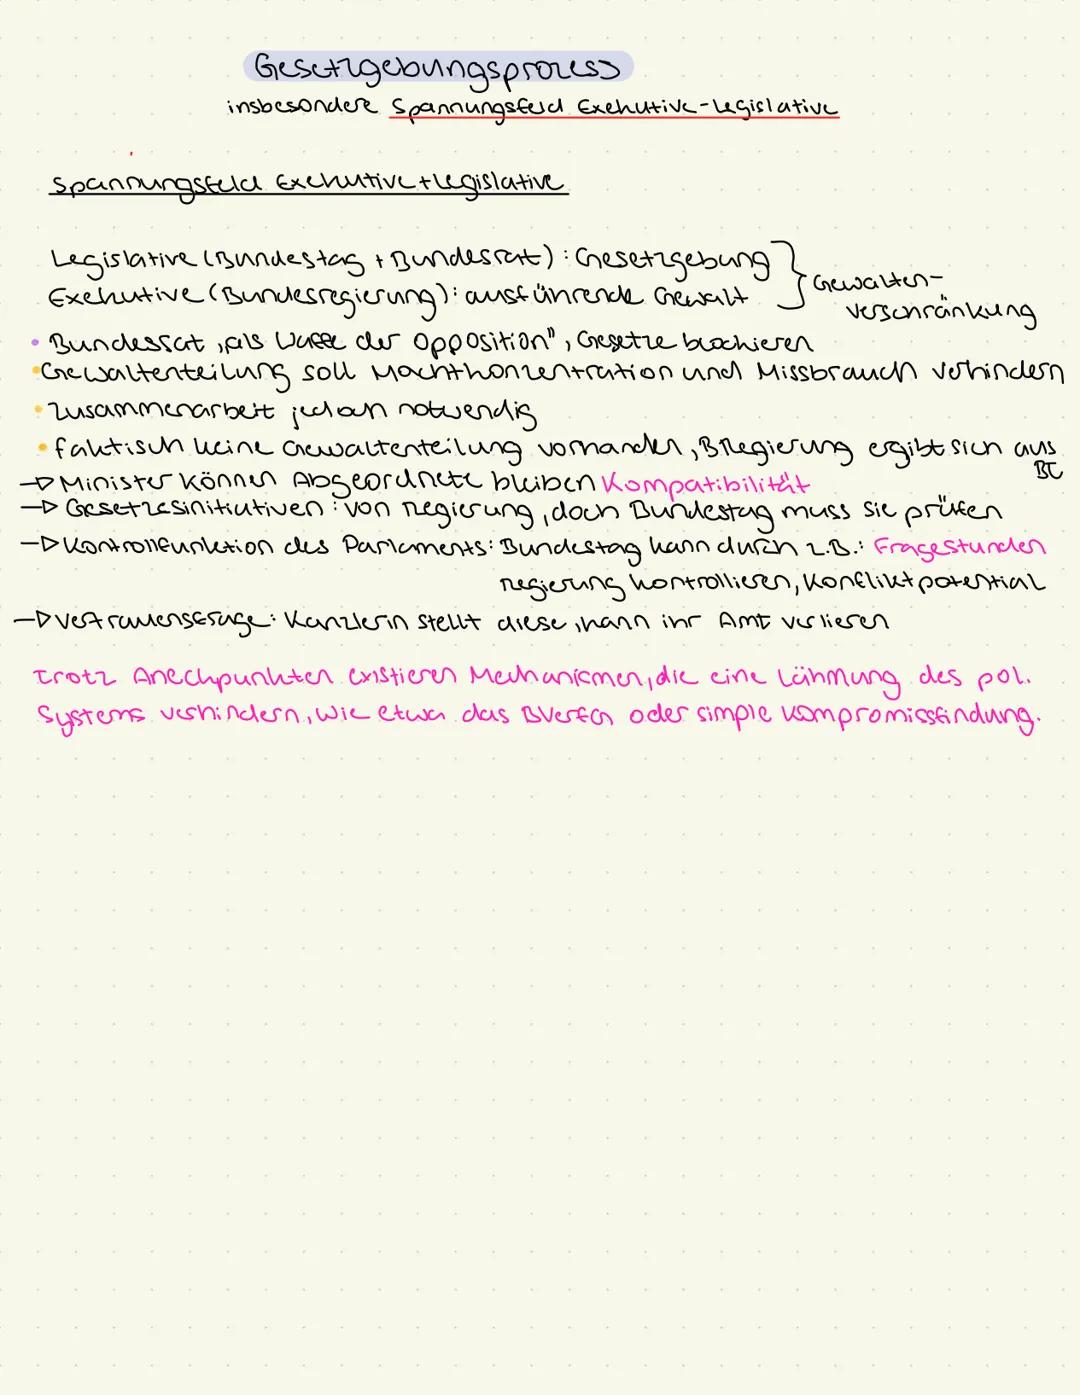 Gesetzgebungsprozess
insbesondere Spannungsfeld Exekutive-Legislative
Spannungsfeld Exekutive + Legislative
Legislative (Bundestag + Bundesrat): Gesetzgebung
Exekutive (Bundesregierung): ausführende Gewalt
Gewalten-
verschränkung
• Bundesrat „als Waffe der Opposition", Gesetze blockieren
• Gewaltenteilung soll Machtkonzentration und Missbrauch verhindern
• Zusammenarbeit jedoch notwendig
• faktisch keine Gewaltenteilung vorhanden, BRegierung ergibt sich aus
BT
→ Minister können Abgeordnete bleiben Kompatibilität
→ Gesetzesinitiativen: von Regierung, doch Bundestag muss sie prüfen
→ Kontrollfunktion des Parlaments: Bundestag kann durch z.B.: Fragestunden
Regierung kontrollieren, Konfliktpotential
→ Vertrauensfrage: Kanzlerin stellt diese, kann ihr Amt verlieren
Trotz Aneckpunkten existieren Mechanismen, die eine Lähmung des pol.
Systems verhindern, wie etwa das BVerfG oder simple Kompromissfindung.